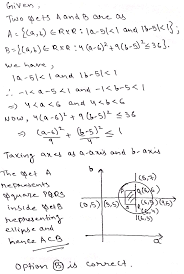 Given,
Two sets A and B are as
A = {(a,b) ∈ R×R : |a-5|<1 and |b-5|<1};
B = {(a,b) ∈ R×R : 4(a-6)²+9(b-5)² ≤ 36}.
we have,
|a-5|<1 and |b-5|<1
∴ -1<a-5<1 and -1<b-5<1
⇒ 4<a<6 and 4<b<6
Now, 4(a-6)²+9(b-5)² ≤ 36
⇒ (a-6)²/9 + (b-5)²/4 ≤ 1
Taking axes as a-axis and b-axis
The set A
represents
square PQRS
inside set B
representing
ellipse and
hence A⊂B
b
(6,7)
(6,6)
(0,5)
(3,5)
(9,5)
(6,4)
(6,3)
a
Option B is correct.